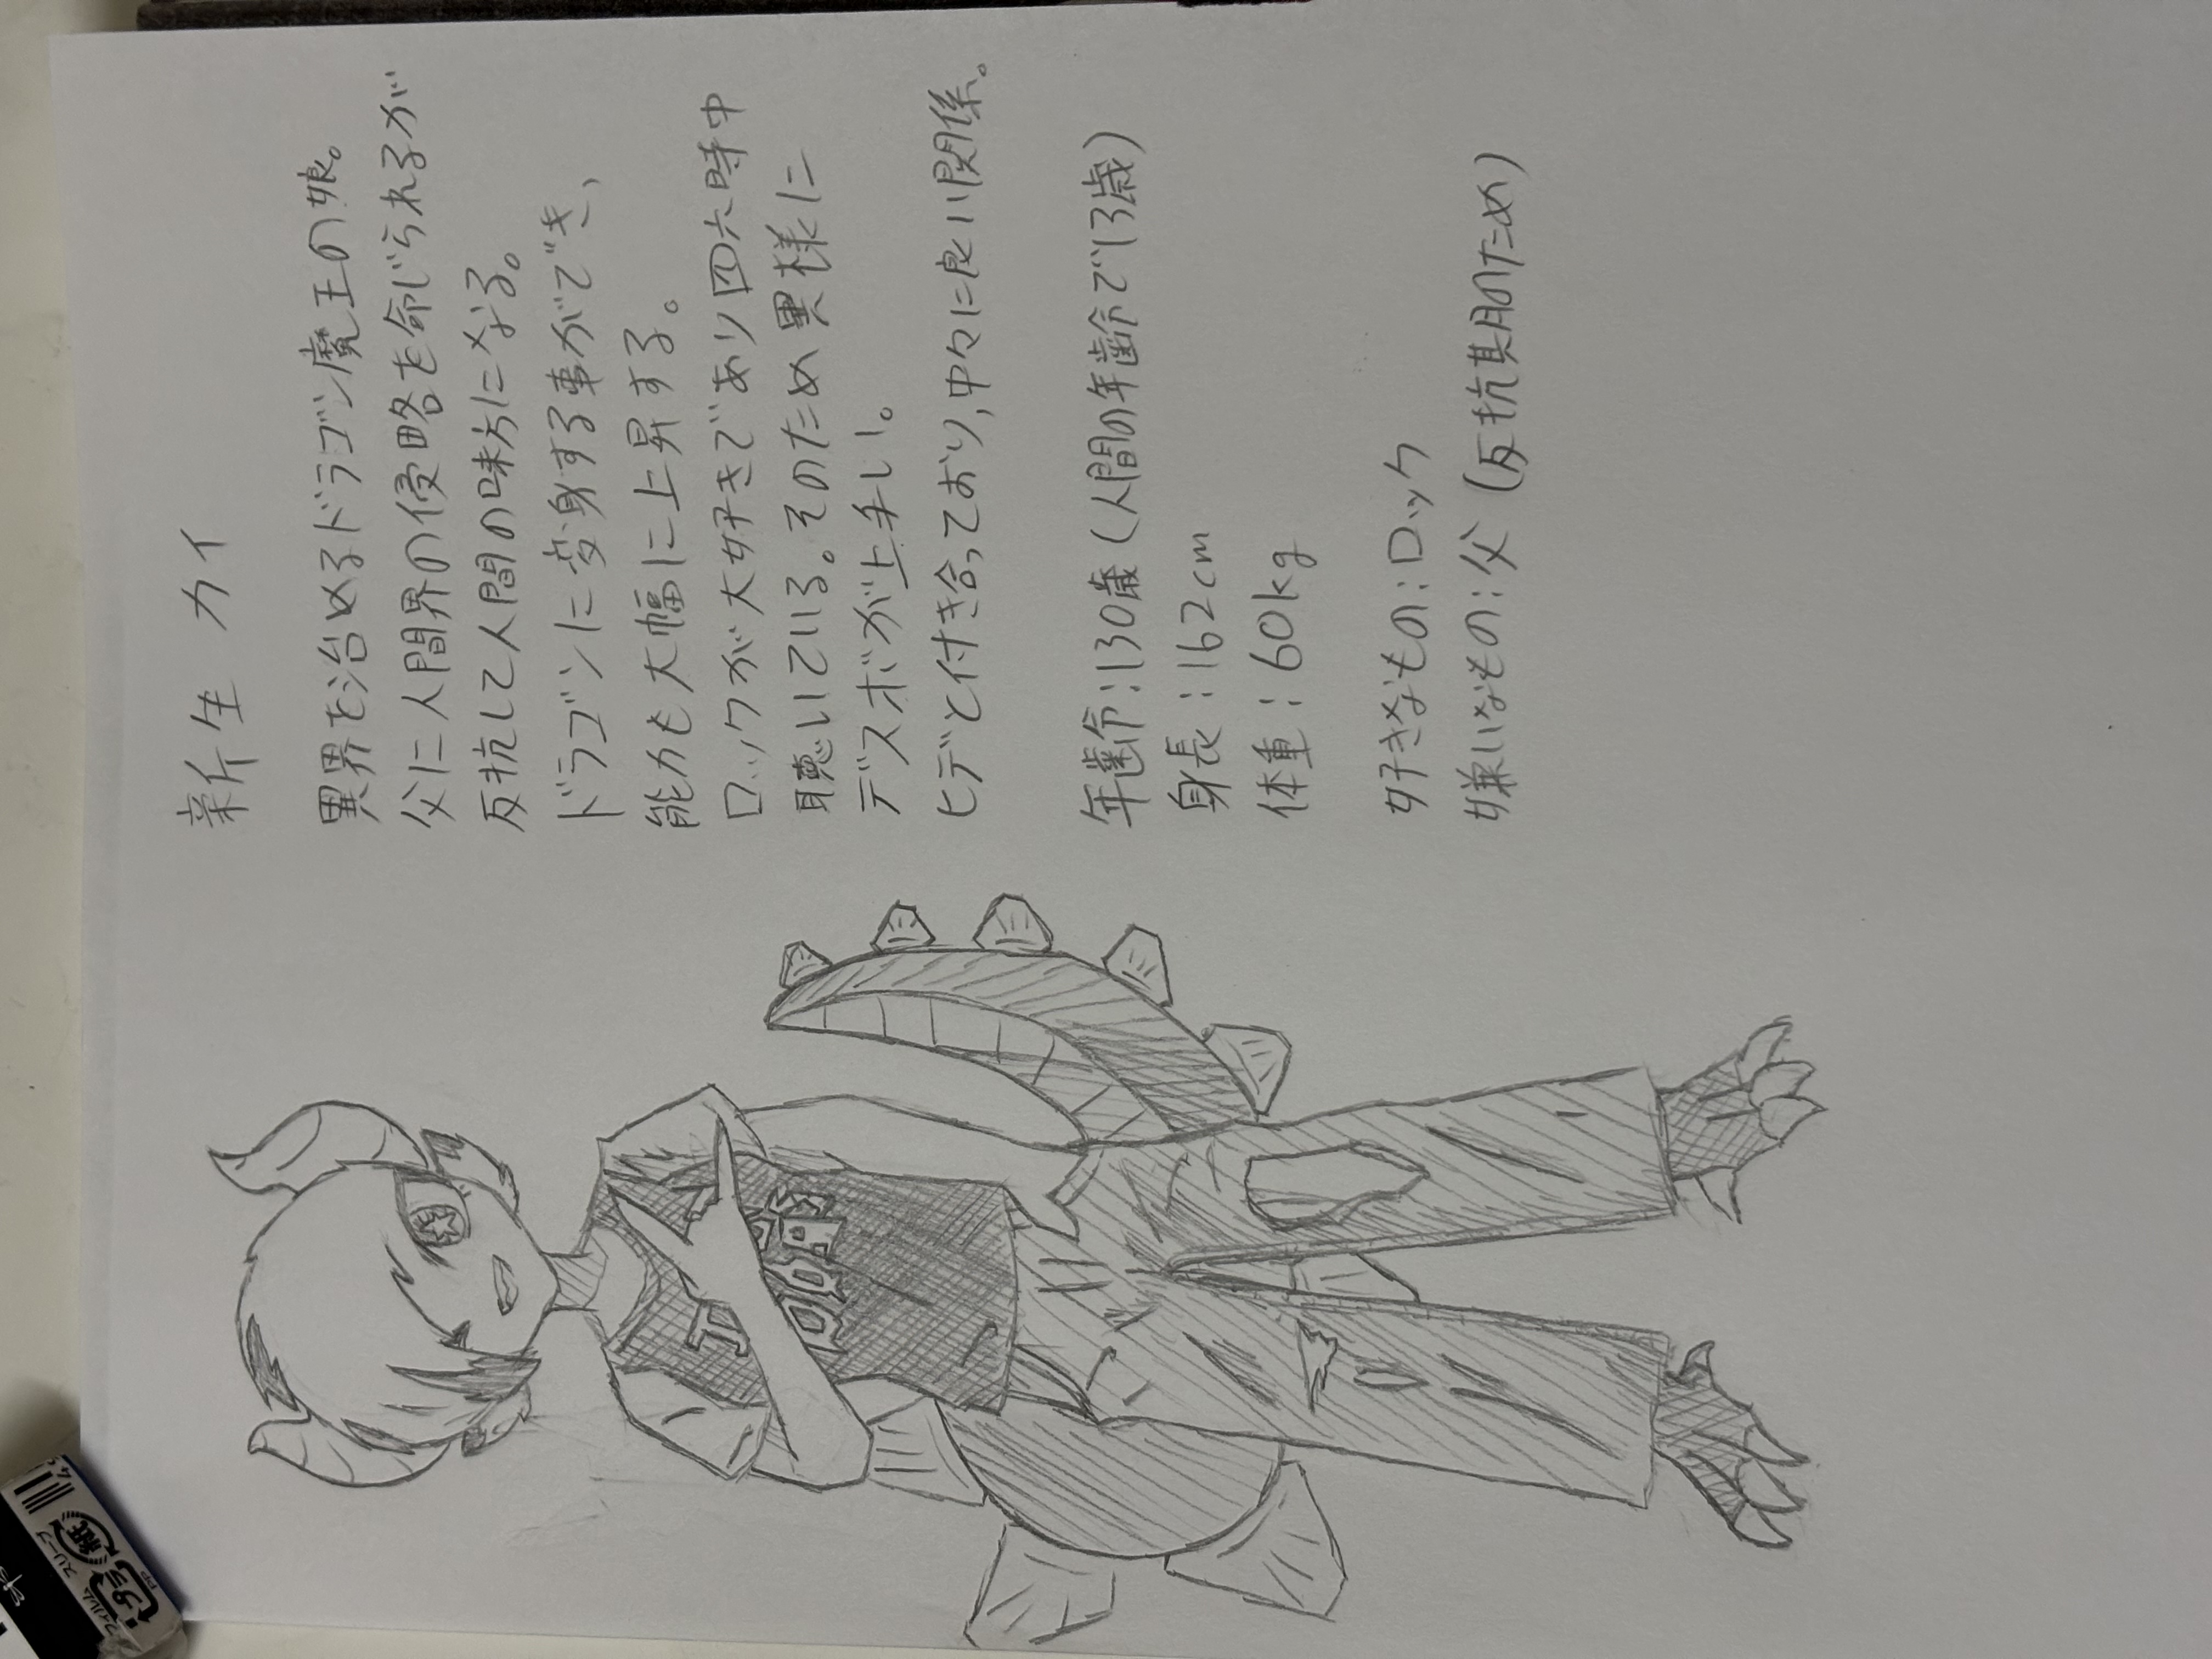 新生 カイ
異界を治めるドラゴン魔王の娘。
父に人間界の侵略を命じられるが
反抗して人間の味方になる。
ドラゴンに変身する事ができ、
能力も大幅に上昇する。
ロックが大好きであり四六時中
聴いている。そのため異様に
デスボが上手い。
ヒデと付き合っており、中々に良い関係。
年齢:130歳(人間の年齢で13歳)
身長:162cm
体重:60kg
好きなもの:ロック
嫌いなもの:父(反抗期のため)
フィルム スリーブ
プラ 紙
PP